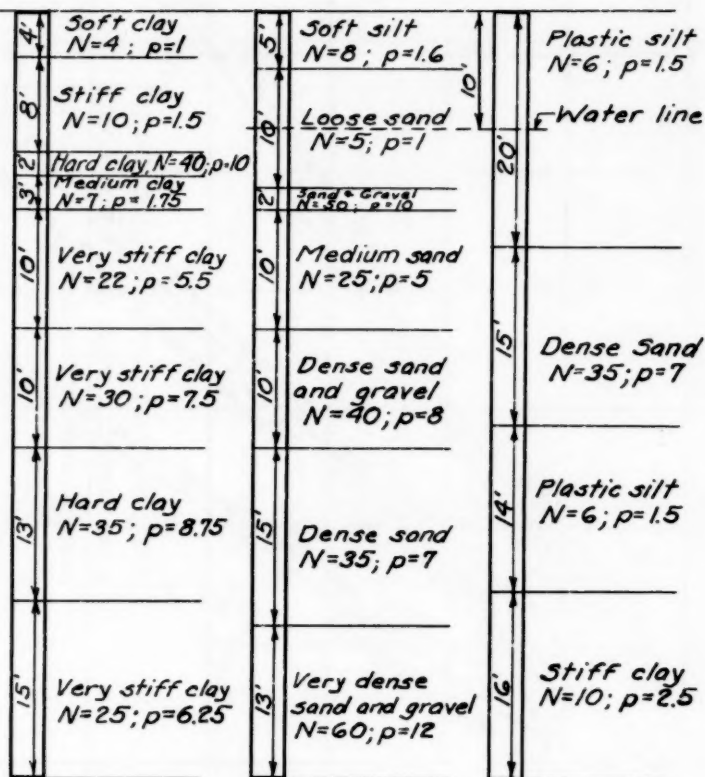 4'
Soft clay
N=4; p=1
8'
Stiff clay
N=10; p=1.5
2'
Hard clay, N=40; p=10
3'
Medium clay
N=7; p=1.75
10'
Very stiff clay
N=22; p=5.5
10'
Very stiff clay
N=30; p=7.5
13'
Hard clay
N=35; p=8.75
15'
Very stiff clay
N=25; p=6.25
5'
Soft silt
N=8; p=1.6
10'
Loose sand
N=5; p=1
2'
Sand & Gravel
N=50; p=10
10'
Medium sand
N=25; p=5
10'
Dense sand
and gravel
N=40; p=8
15'
Dense sand
N=35; p=7
13'
Very dense
sand and gravel
N=60; p=12
10'
Plastic silt
N=6; p=1.5
Water line
20'
15'
Dense Sand
N=35; p=7
14'
Plastic silt
N=6; p=1.5
16'
Stiff clay
N=10; p=2.5